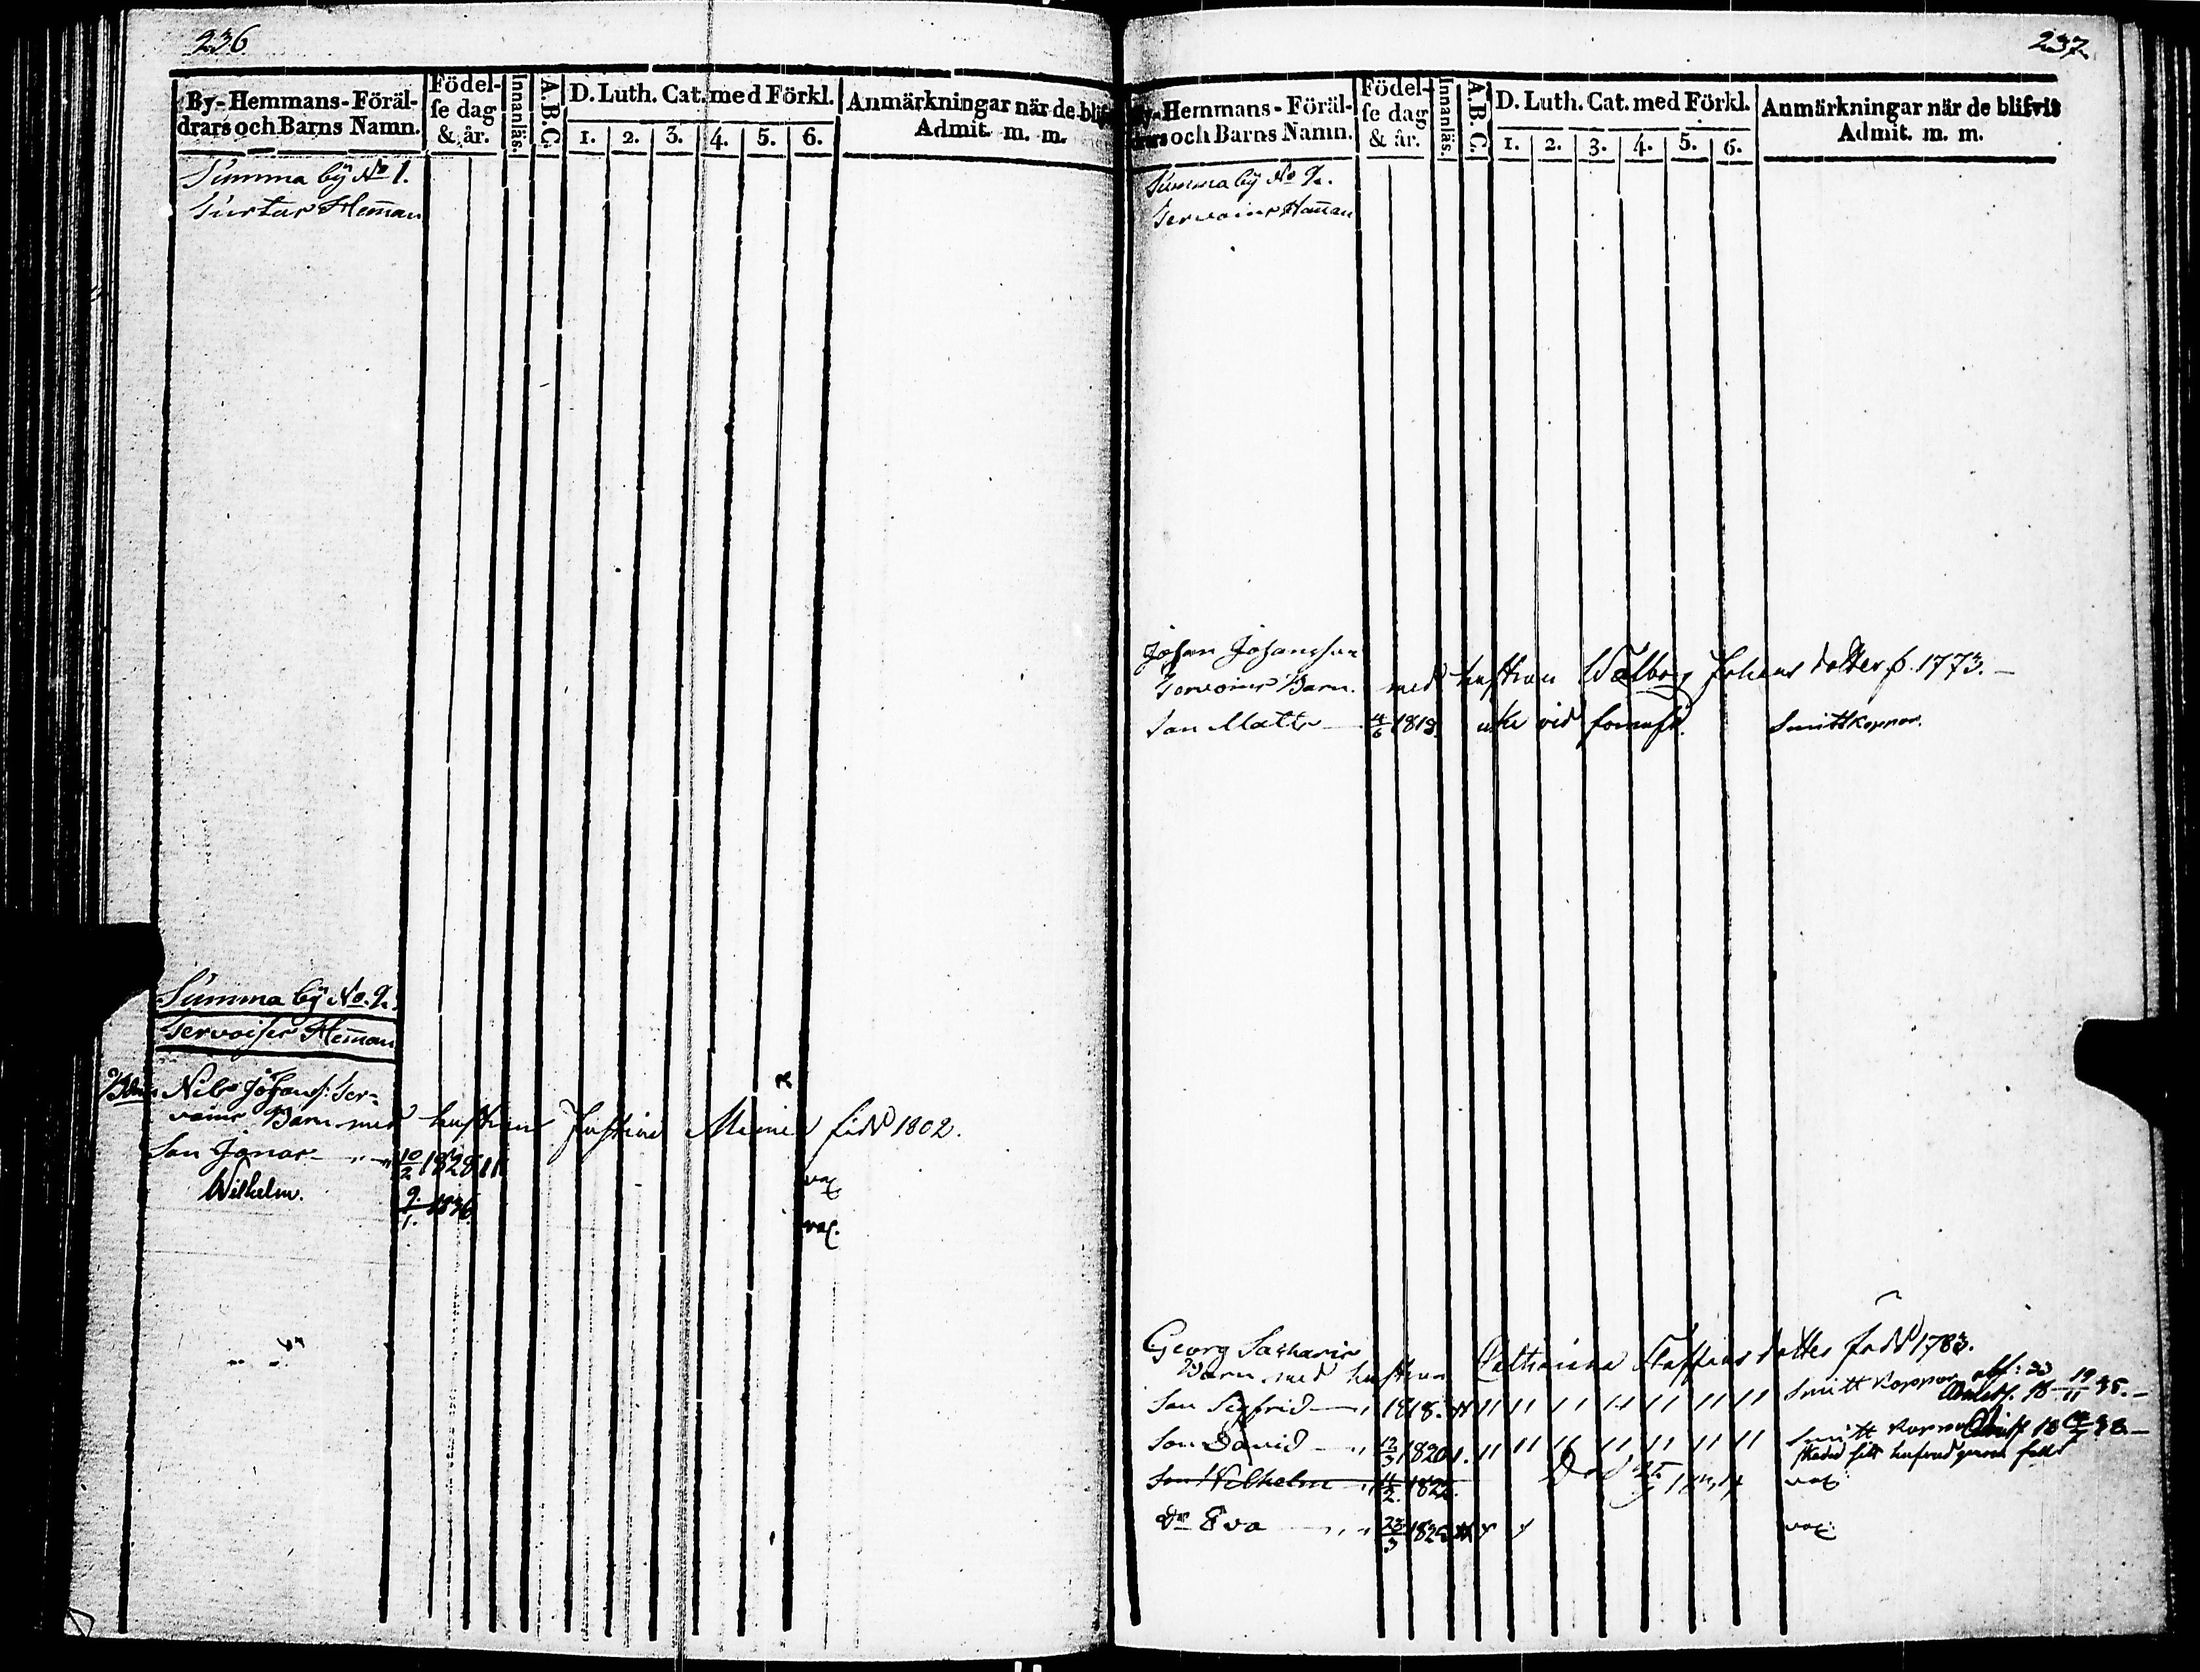 236
By-Hemmans-Föräl-
drars och Barns Namn.
Födel-
se dag
& år.
Innanläs.
A.B.C.
D. Luth. Cat. med Förkl.
1. 2. 3. 4. 5. 6.
Anmärkningar när de blif
Admit. m. m.
Summa by No 1.
Gustas Heman
Summa by No. 2.
Servoiser Heman
Nils Johans: Ser-
voins Barn med hustrun Justina fidd 1802.
Son Jonas 10/2 1828 vac
Wilhelm. 9/1. 1836 vac.
237
By-Hemmans-Föräl-
drars och Barns Namn.
Födel-
se dag
& år.
Innanläs.
A.B.C.
D. Luth. Cat. med Förkl.
1. 2. 3. 4. 5. 6.
Anmärkningar när de blifvit
Admit. m. m.
Summa by No 2.
Servoins Heman
Johan Johansson
Servoins Barn. med hustrun Walborg Johans dotter f. 1773.
Son Matts 1818. icke vid fornuft. Smittkoppor.
Georg Sacharis
Barn med hustrun Catharina Staffans dotter född 1783.
Son Sigfrid 1818. Smitt koppor Admitt. 18 19/11 35.
Son David 12/3 1820 Smitt koppor
Son Wilhelm 1822. Död vac
Dr Eva 23/3 182 vac